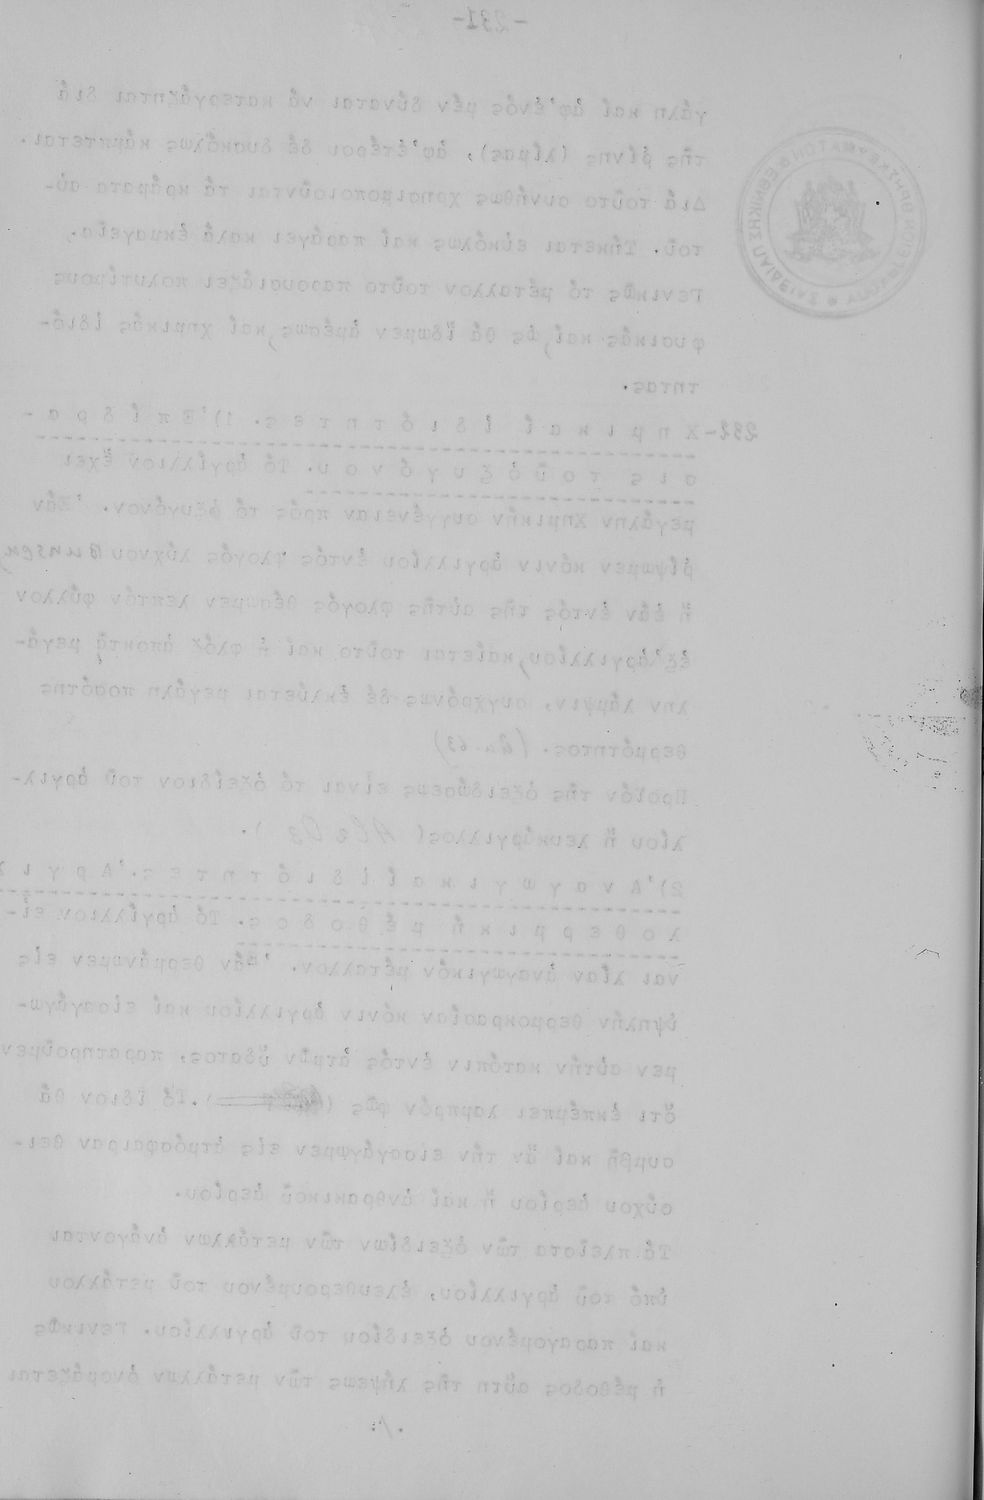 -231-
γάλη καί ἀφ'ἑνός μέν δύναται νά κατεργάζηται διά
τῆς ῥίνης (λίμας), ἀφ'ἑτέρου δέ δυσκόλως κάμπτεται.
Διά τοῦτο συνήθως χρησιμοποιοῦνται τά κράματα αὐ-
τοῦ. Τήκεται εὐκόλως καί παράγει καλά ἐκμαγεῖα.
Γενικῶς τό μέταλλον τοῦτο παρουσιάζει πολυτίμους
φυσικάς καί, ὡς θά ἴδωμεν ἀμέσως, καί χημικάς ἰδιό-
τητας.
232-Χημικαί ἰδιότητες. 1)'Επίδρα-
σις τοῦ ὀξυγόνου. Τό ἀργίλλιον ἔχει
μεγάλην χημικήν συγγένειαν πρός τό ὀξυγόνον. 'Εάν
ῥίψωμεν κόνιν ἀργιλλίου ἐντός φλογός λύχνου Bunsen,
ἤ ἐάν ἐντός τῆς αὐτῆς φλογός θέσωμεν λεπτόν φύλλον
ἐξ ἀργιλλίου, καίεται τοῦτο καί ἡ φλόξ ἀποκτᾷ μεγά-
λην λάμψιν, συγχρόνως δέ ἐκλύεται μεγάλη ποσότης
θερμότητος. 63)
Προϊόν τῆς ὀξειδώσεως εἶναι τό ὀξείδιον τοῦ ἀργιλ-
λίου ἤ λευκάργιλλος( Al2O3 ).
2)'Αναγωγικαί ἰδιότητες.'Αργιλ
λοθερμική μέθοδος. Τό ἀργίλλιον εἶ-
ναι λίαν ἀναγωγικόν μέταλλον. 'Εάν θερμάνωμεν εἰς
ὑψηλήν θερμοκρασίαν κόνιν ἀργιλλίου καί εἰσαγάγω-
μεν αὐτήν κατόπιν ἐντός ἀτμῶν ὕδατος, παρατηροῦμεν
ὅτι ἐκπέμπει λαμπρόν φῶς ( ).Τό ἴδιον θά
συμβῇ καί ἄν τήν εἰσαγάγωμεν εἰς ἀτμόσφαιραν θει-
ούχου ἀερίου ἤ καί ἀνθρακικοῦ ἀερίου.
Τά πλεῖστα τῶν ὀξειδίων τῶν μετάλλων ἀνάγονται
ὑπό τοῦ ἀργιλλίου, ἐλευθερουμένου τοῦ μετάλλου
καί παραγομένου ὀξειδίου τοῦ ἀργιλλίου. Γενικῶς
ἡ μέθοδος αὕτη τῆς λήψεως τῶν μετάλλων ὀνομάζεται
./.
ΥΠΟΥΡΓΕΙΟΝ ΘΡΗΣΚΕΥΜΑΤΩΝ & ΕΘΝΙΚΗΣ ΠΑΙΔΕΙΑΣ